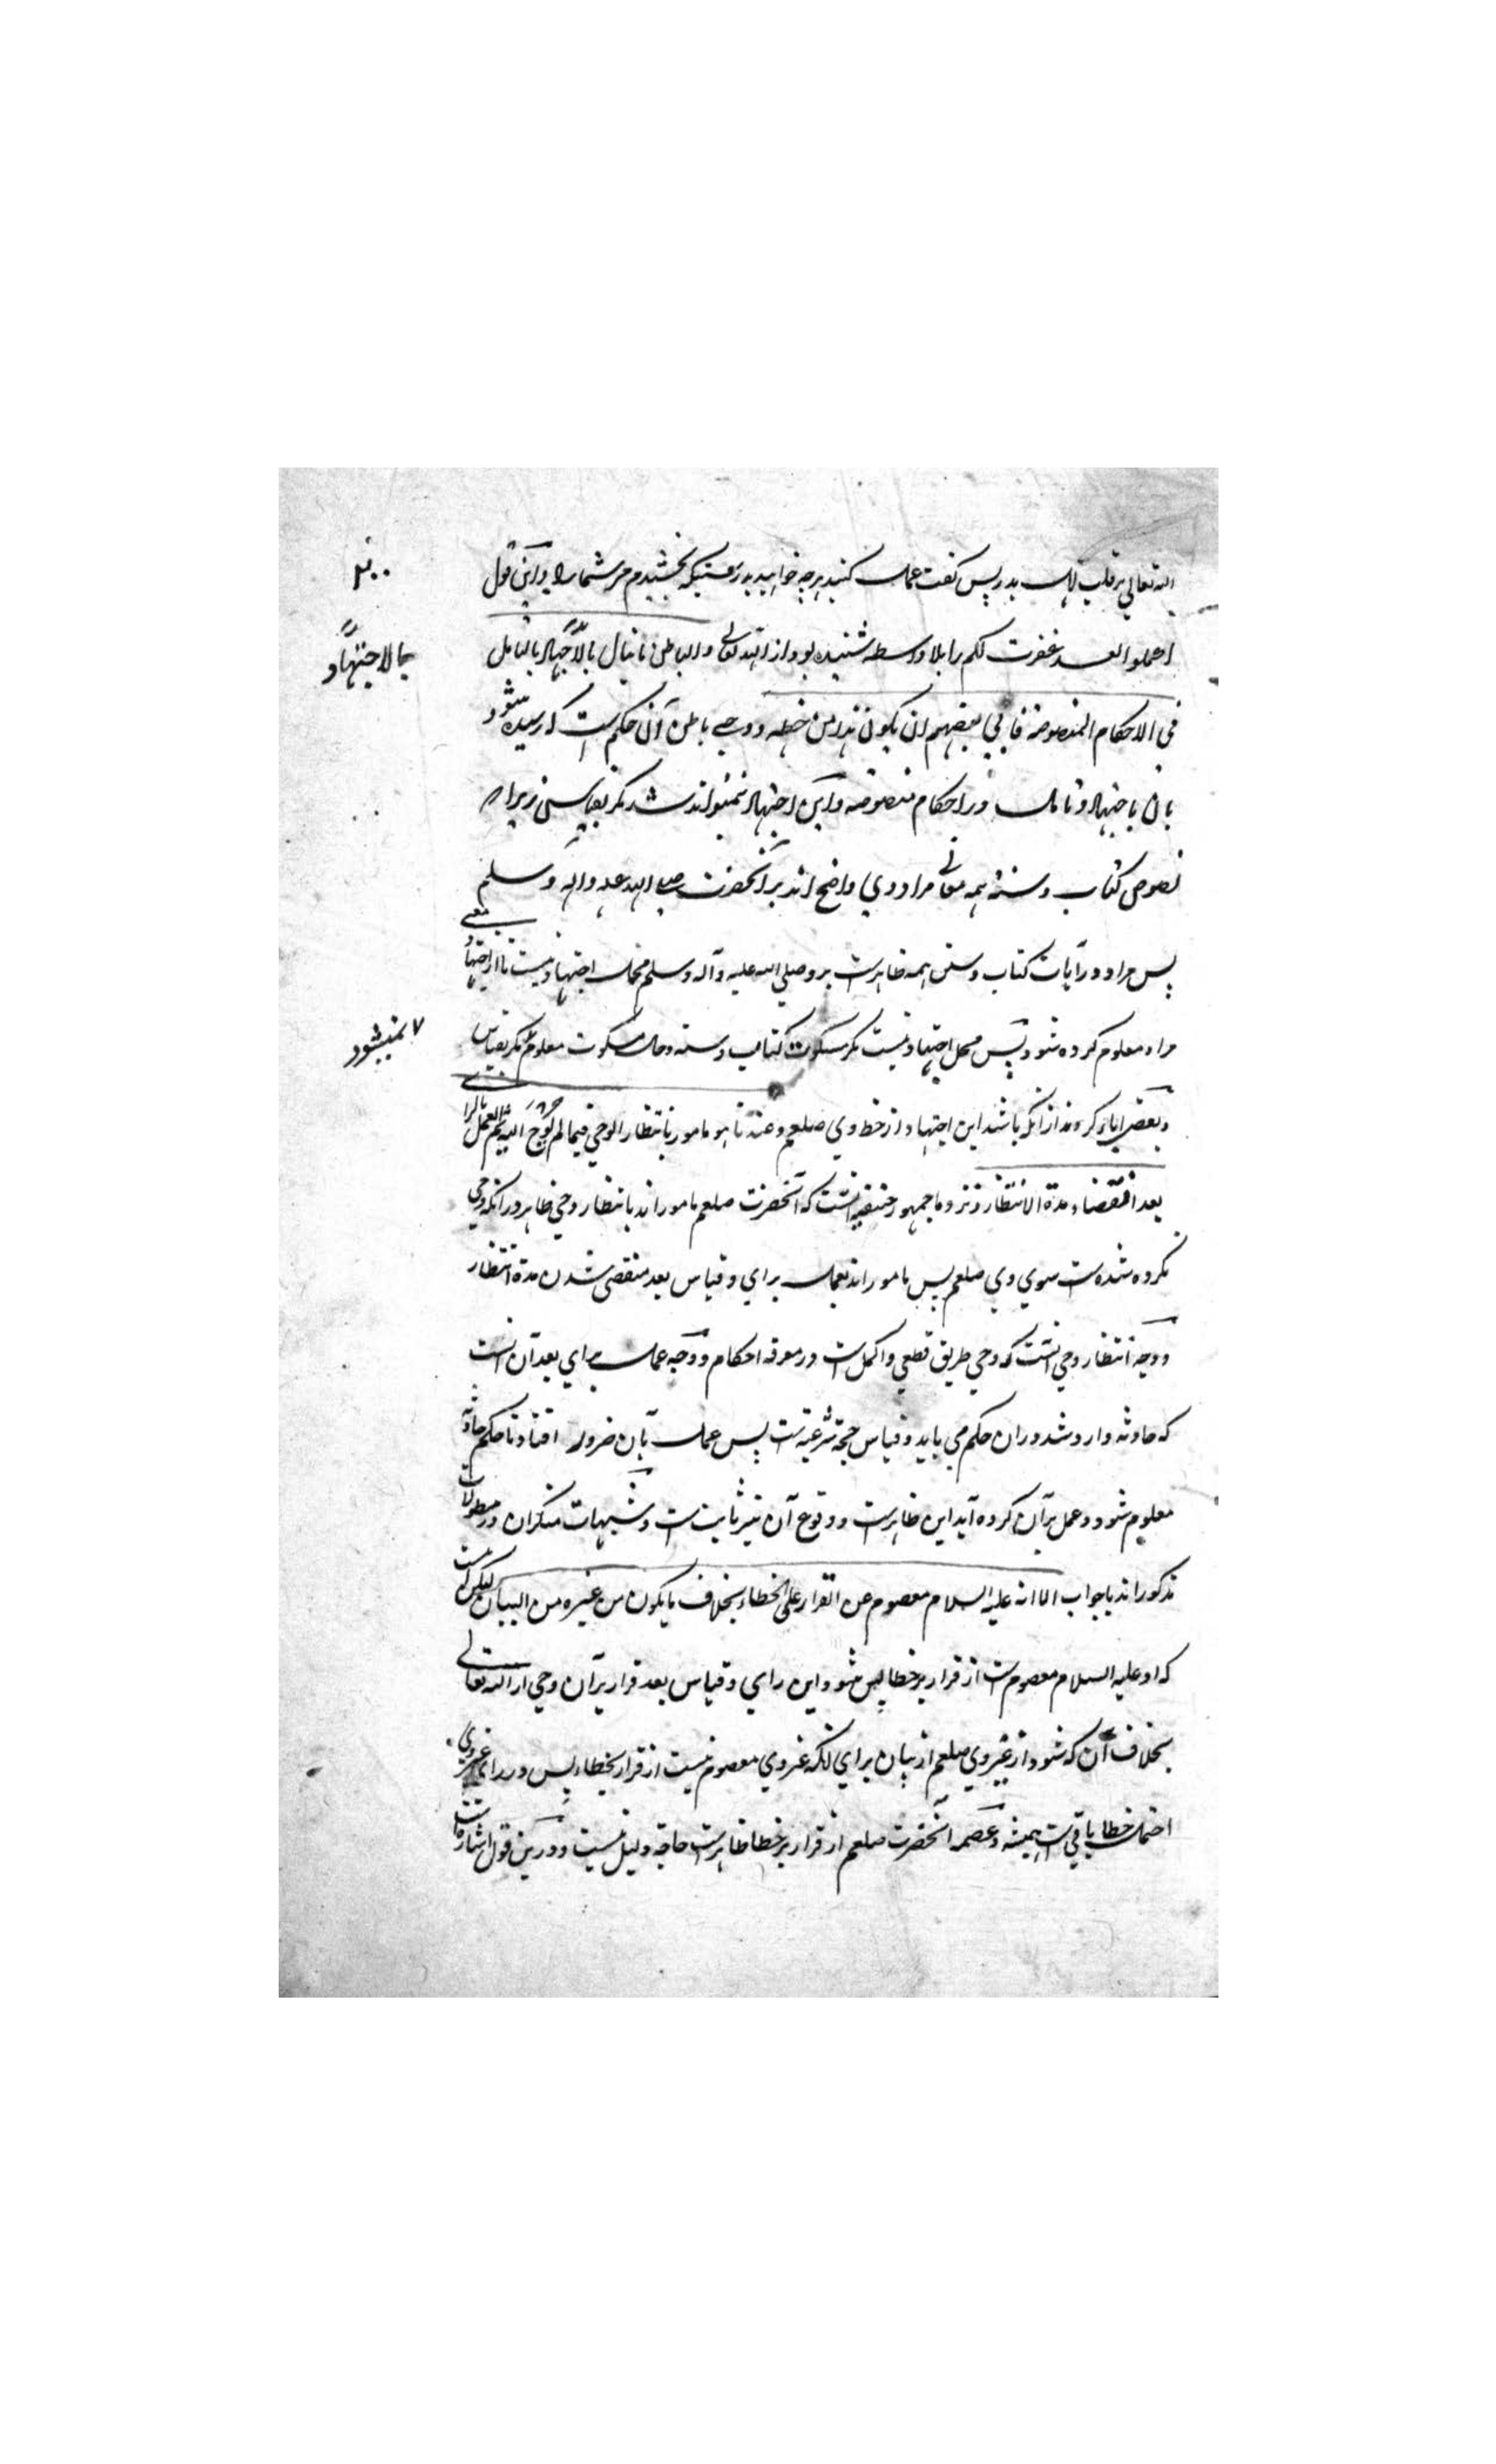 الله تعالی بر قلب اهل بدر پس گفت عمل کنید هرچه خواهید بدرستیکه بخشیدم مر شما را و این قول
۲۰۰
اعملوا لقد غفرت لکم را بلا واسطه شنیده بود از الله تعالی والباطن ما ینال بالاجتهاد بالتامل
بالاجتهاد
فی الاحکام المنصوصة فابی بعضهم ان یکون هذا من حظه و وحی باطن آن حکم است که رسیده میشود
بآن باجتهاد و تامل در احکام منصوصه و این اجتهاد نمیتواند شد مگر بقیاس زیراچه
نصوص کتاب و سنة همه معانی مراد وی واضح اند بر آنحضرت صلی الله علیه و آله و سلم
پس مراد در آیات کتاب و سنن همه ظاهرست بر و صلی الله علیه و آله وسلم محل اجتهاد نیست تا از اجتهاد معنی
مراد معلوم کرده شود پس محل اجتهاد نیست مگر مسکوت کتاب و سنه و حال مسکوت معلوم مگر بقیاس
نمیشود
و بعضی ابا کردند از آنکه باشد این اجتهاد از حظ وی صلعم وعندنا هو مامور بانتظار الوحی فیما لم یوح الیه ثم العمل بالرای
بعد انقضاء مدة الانتظار و نزد ما جمهور حنفیه آنست که آنحضرت صلعم مامور اند بانتظار وحی ظاهر در آنکه وحی
نکرده شده ست سوی وی صلعم پس مامور اند بعمل برای و قیاس بعد منقضی شدن مدة انتظار
و وجه انتظار وحی آنست که وحی طریق قطعی و اکمل ست در معرفة احکام و وجه عمل برای بعد آن آنست
که حادثه وارد شد و در آن حکم می باید و قیاس حجة شرعیه ست پس عمل بآن ضرور افتاد تا حکم حادثه
معلوم شود و عمل بر آن کرده آید این ظاهرست و وقوع آن نیز ثابت ست و شبهات منکران در مطولات
مذکور اند با جواب الا انه علیه السلام معصوم عن القرار علی الخطاء بخلاف ما یکون من غیره من البیان لیکن اینست
که او علیه السلام معصوم ست از قرار بر خطا پس شود این رای و قیاس بعد قرار بر آن وحی از الله تعالی
بخلاف آن که شود از غیر وی صلعم از بیان برای آنکه غیر وی معصوم نیست از قرار بخطاء پس در رای غیر وی
احتمال خطا باقی ست همیشه و عصمة آنحضرت صلعم از قرار بر خطا ظاهرست حاجة دلیل نیست و درین قول اشاره است